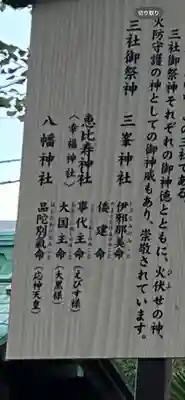 切り取り
三社である
三社御祭神それぞれの御神徳とともに、火伏せの神、
火防守護の神としての御神威もあり、崇敬されています。
三社御祭神
三峯神社 伊邪那美命
倭建命
恵比寿神社 事代主命(えびす様)
(幸福神社) 大国主命(大黒様)
八幡神社 品陀別氣命(応神天皇)